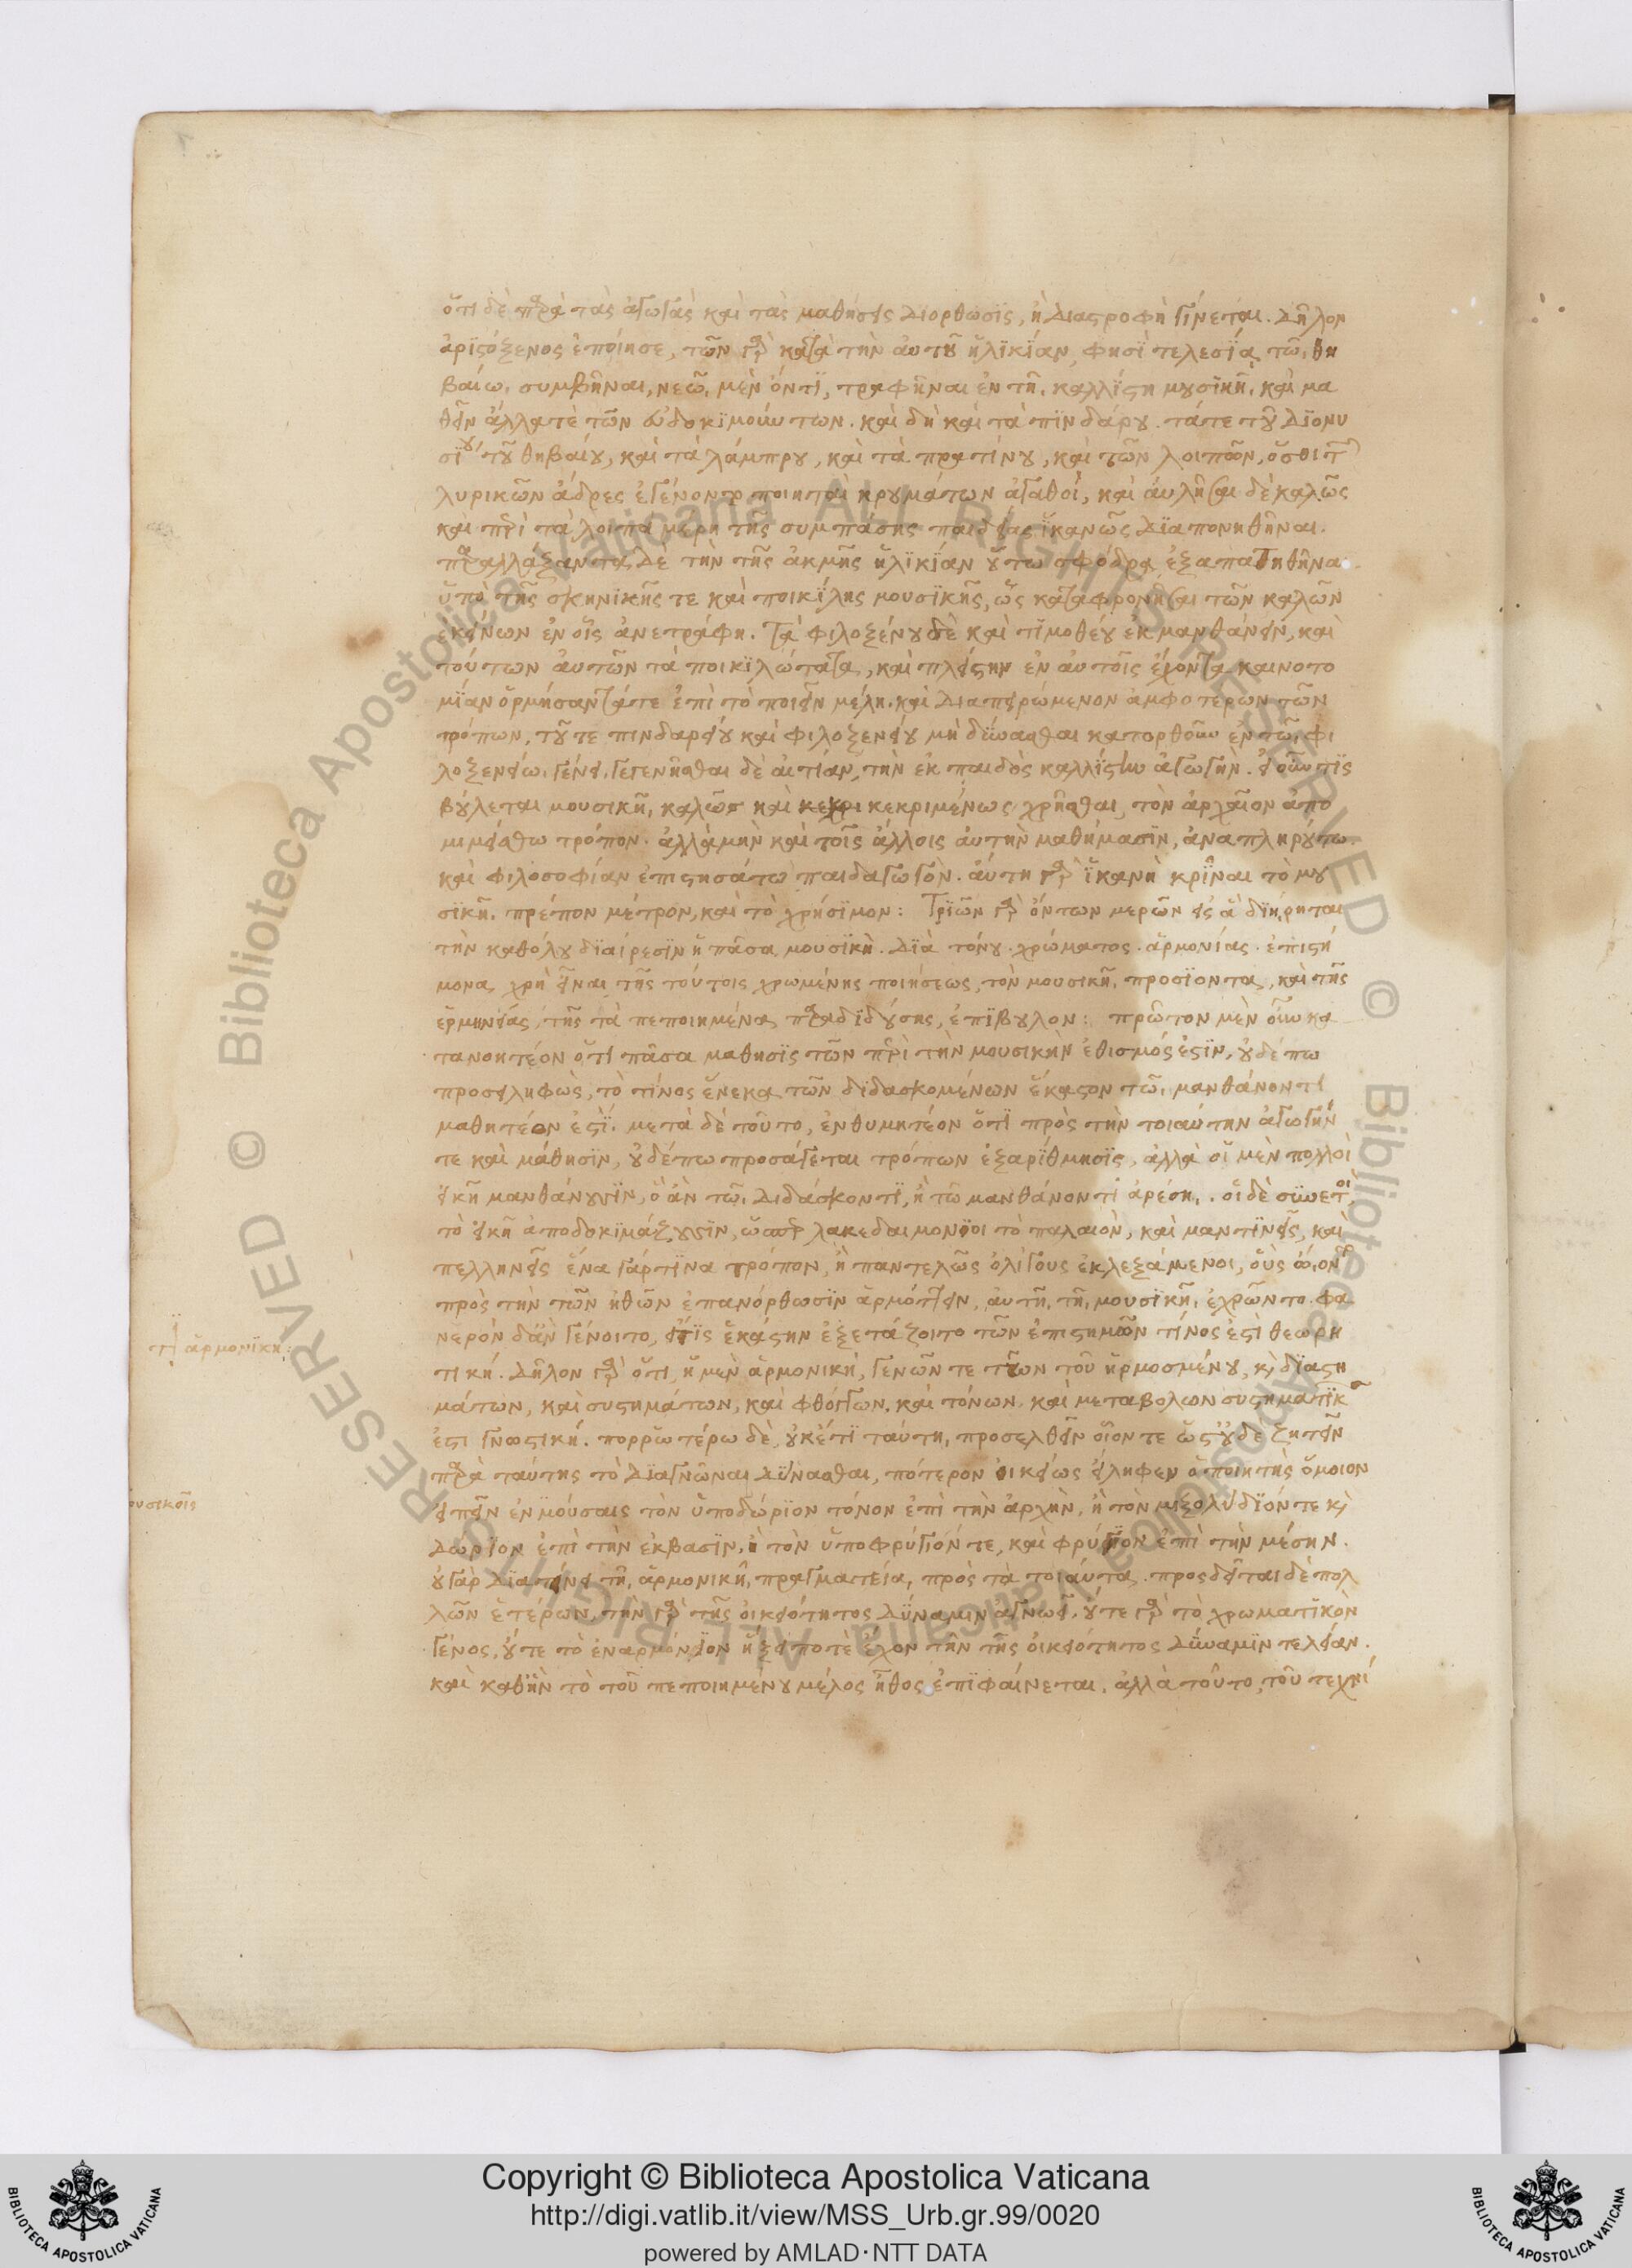 ὅτι δὲ παρὰ τὰς ἀγωγὰς καὶ τὰς μαθήσεις διορθωσϊς, ἢ διαστροφὴ γίνεται. δῆλον
ἀριστόξενος ἐποίησε, τῶν γὰρ κατὰ τὴν ἀυτοῦ ἡλϊκϊαν, φησϊ τελεσΐα τῶ θη
βαίω, συμβῆναι, νεῶ μὲν ὄντϊ, τραφῆναι ἐν τῆ καλλίστη μουσϊκῆ, καὶ μα
θεῖν ἄλλατὲ τῶν ἐυδοκϊμούντων. καὶ δὴ καὶ τὰ πϊνδάρου. τάτε τοῦ Διονυ
σϊου τοῦ θηβαίου, καὶ τὰ λάμπρου, καὶ τὰ πρατίνου, καὶ τῶν λοιπῶν, ὅσοι τ
λυρικῶν ἄδρες ἐγένοντο ποιηταὶ κρουμάτων ἀγαθοί, καὶ ἀυλῆσαι δὲ καλῶς
και περὶ τὰ λοιπὰ μέρη τῆς συμπάσης παιδείας ἱκανῶς Δϊαπονηθῆναι.
παραλλάξαντα δὲ τὴν τῆς ἀκμῆς ἡλϊκίαν οὕτω σφόδρα ἐξαπατηθῆναι
ὑπὸ τῆς σκηνϊκῆς τε καὶ ποικίλης μουσϊκῆς, ὡς καταφρονῆσαι τῶν καλῶν
ἐκείνων ἐν οἷς ἀνετράφη. Τὰ φιλοξένου δὲ καὶ τϊμοθέου ἐκμανθάνειν, καὶ
τούτων ἀυτῶν τὰ ποικϊλώτατα, καὶ πλείστην ἐν ἀυτοῖς ἔχοντα καινοτο
μΐαν ὁρμήσαντάτε ἐπὶ τὸ ποιεῖν μέλη. καὶ Διαπειρώμενον ἀμφοτέρων τῶν
τρόπων, τοῦ τε πινδαρείου καὶ φιλοξενείου μὴ δύνασθαι κατορθοῦν ἐν τῶ φι
λοξενείω γένει, γεγενῆσθαι δὲ ἀιτίαν, τὴν ἐκ παιδὸς καλλίστην ἀγωγήν. εἰ οὖν τϊς
βούλεται μουσικῆ καλῶς καὶ κεκρι κεκριμένως χρῆσθαι, τὸν ἀρχαῖον ἀπο
μιμείσθω τρόπον. ἀλλὰ μὴν καὶ τοῖς ἄλλοις ἀυτὴν μαθήμασϊν, ἀναπληρούτω
καὶ φιλοσοφίαν ἐπιστησάτω παιδαγωγὸν. ἀύτη γὰρ ἱκανὴ κρῖναι τὸ μου
σϊκῆ πρέπον μέτρον, καὶ τὸ χρήσϊμον: Τρϊῶν γὰρ ὄντων μερῶν εἰς ἃ δϊήρηται
τὴν καθόλου δϊαίρεσϊν ἡ πᾶσα μουσϊκὴ. Δϊὰ τόνου. χρώματος. ἁρμονίας. ἐπιστή
μονα χρὴ εἶναι τῆς τούτοις χρωμένης ποιήσεως, τὸν μουσικῆ προσϊοντα, καὶ τῆς
ἑρμηνείας, τῆς τὰ πεποιημένα παραδϊδούσης, ἐπϊβουλον: πρῶτον μὲν οὖν κα
τανοητέον ὅτι πᾶσα μαθησϊς τῶν περὶ τὴν μουσικὴν ἐθισμός ἐστϊν, οὐδέπω
προσειληφὼς, τὸ τίνος ἕνεκα τῶν δϊδασκομένων ἕκαστον τῶ μανθάνοντι
μαθητέον ἐστΐ. μετὰ δὲ τοῦτο, ἐνθυμητέον ὅτϊ πρὸς τὴν τοιαύτην ἀγωγήν
τε καὶ μάθησϊν, οὐδέπω προσάγεται τρόπων ἐξαρίθμησϊς, ἀλλὰ οἱ μὲν πολλοὶ
εἰκῆ μανθάνουσϊν, ὃ ἀν τῶ διδάσκοντϊ, ἢ τῶ μανθάνοντι ἀρέση. οἱ δὲ συνετοὶ
τὸ εἰκῆ ἀποδοκϊμάζουσϊν, ὥσπερ λακεδαιμονϊοι τὸ παλαιὸν, καὶ μαντϊνεῖς, καὶ
πελληνεῖς ἕνα γάρ τϊνα τρόπον, ἢ παντελῶς ὀλίγους ἐκλεξάμενοι, οὓς ὤιοντο
πρὸς τὴν τῶν ἠθῶν ἐπανόρθωσϊν ἁρμόττειν, ἀυτῆ τῆ μουσϊκῆ ἐχρῶντο. φα
νερὸν δ' ἂν γένοιτο, εἴτϊς ἑκάστην ἐξετάζοιτο τῶν ἐπιστημῶν τίνος ἐστὶ θεωρη
τική. Δῆλον γὰρ ὅτι ἡ μὲν ἁρμονικὴ, γενῶν τε των τοῦ ἡρμοσμένου, καὶ δϊαστη
μάτων, καὶ συστημάτων, καὶ φθόγγων. καὶ τόνων καὶ μεταβολων συστηματϊκ
ἐστι γνωστική. πορρωτέρω δὲ, οὐκέτϊ ταύτη, προσελθεῖν οἷόν τε ὥστ' οὐδὲ ζητεῖν
παρὰ ταύτης τὸ Δϊαγνῶναι Δύνασθαι, πότερον οἰκείως εἴληφεν ὁ ποιητὴς ὅμοιον
εἰπεῖν ἐν μούσαις τὸν ὑποδώρϊον τόνον ἐπὶ τὴν ἀρχὴν, ἢ τὸν μιξολύδϊόν τε καὶ
Δώρϊον ἐπὶ τὴν ἐκβασϊν, ἢ τὸν ὑποφρύγιόν τε, καὶ φρύγϊον ἐπὶ τὴν μέσην.
οὐ γὰρ Δϊατείνει τῆ ἁρμονικῆ πραγματεία, πρὸς τὰ τοιάυτα. προσδεῖται δὲ πολ
λῶν ἑτέρων, τὴν γὰρ τῆς οἰκειότητος Δύναμιν ἀγνωεῖ. οὔτε γὰρ τὸ χρωματϊκὸν
γένος, οὔτε τὸ ἐναρμόνϊον ἥξει ποτὲ ἔχον τὴν τῆς οἰκειότητος Δύναμϊν τελείαν.
καὶ καθ' ἣν τὸ τοῦ πεποιημένου μέλος ἦθος ἐπϊφαίνεται. ἀλλὰ τοῦτο, τοῦ τεχνί
τί ἁρμονϊκη:
ουσικοῖς
© Biblioteca Apostolica Vaticana ALL RIGHTS RESERVED © Biblioteca Apostolica Vaticana ALL RIGHTS RESERVED
Copyright © Biblioteca Apostolica Vaticana
http://digi.vatlib.it/view/MSS_Urb.gr.99/0020
powered by AMLAD·NTT DATA
BIBLIOTECA APOSTOLICA VATICANA
BIBLIOTECA APOSTOLICA VATICANA